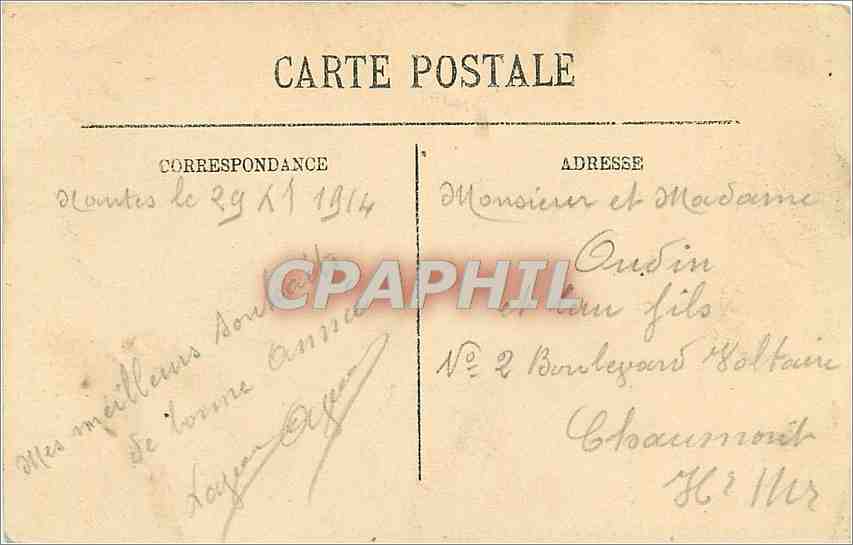 CARTE POSTALE
CORRESPONDANCE
Nantes le 29 XI 1914
Mes meilleurs souhaits
de bonne année
ADRESSE
Monsieur et Madame
Oudin
et leur fils
No 2 Boulevard Voltaire
Chaumont
Hte Mne
CPAPHIL